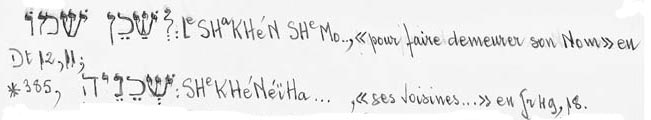 לְשַׁכֵּן שְׁמוֹ: LᵉSHᵃKHéN SHᵉMo..,«pour faire demeurer son Nom» en
Dt 12,11;
*385, שְׁכֵנֶיהָ: SHᵉKHéNéïHa... ,«ses voisines...» en Jr 49,18.